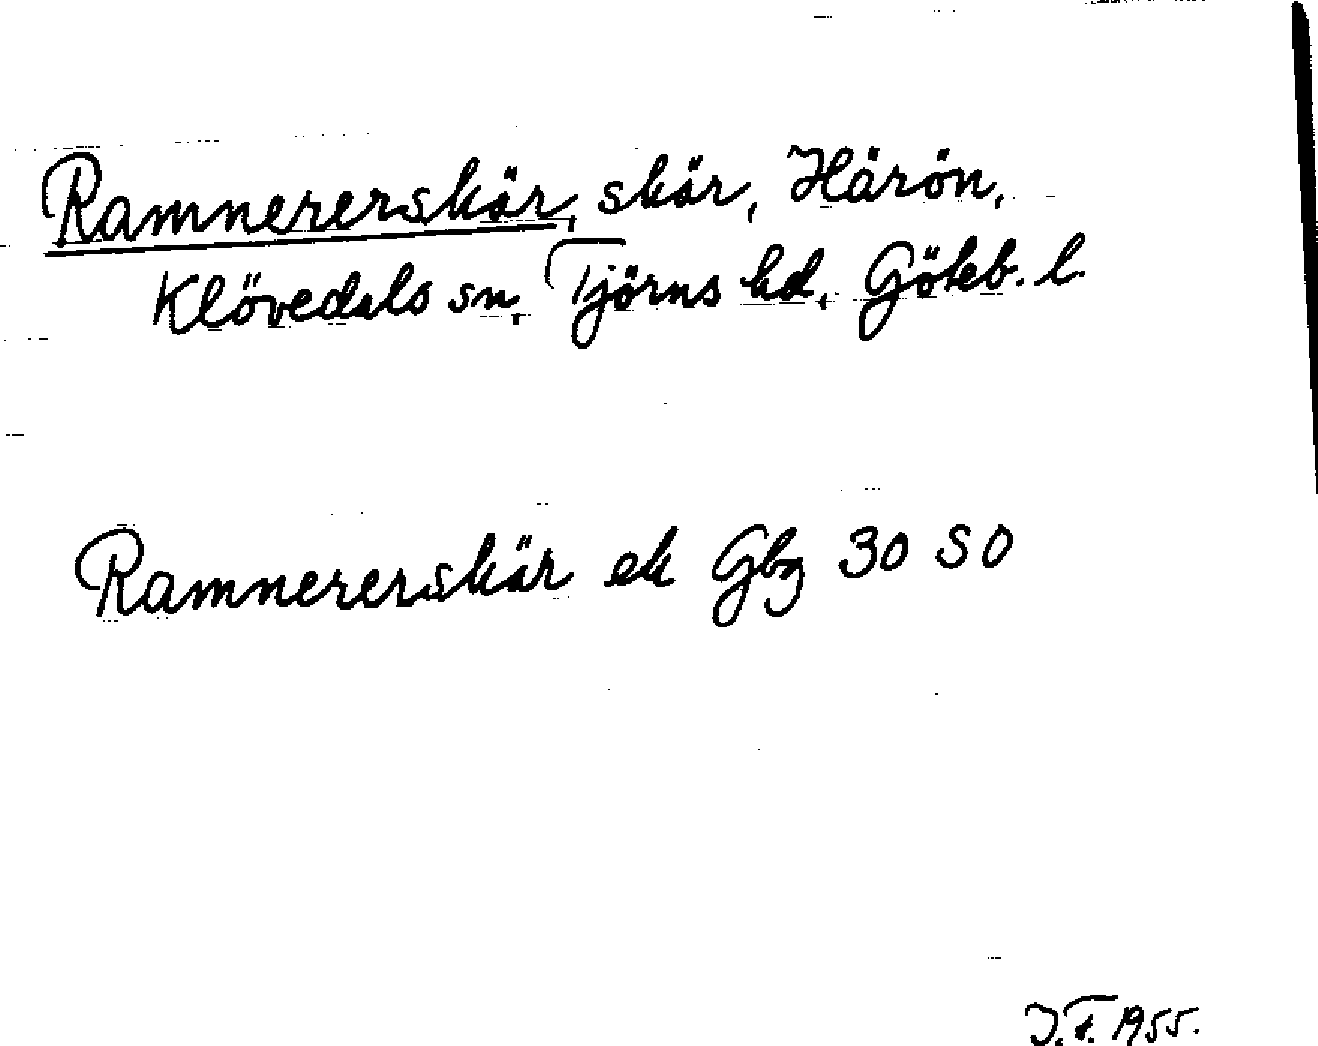 Ramnererskär, skär, Härön,
Klövedals sn, Tjörns hd, Göteb. l.
Ramnererskär ek Gbg 30 SO
J.F. 1955.